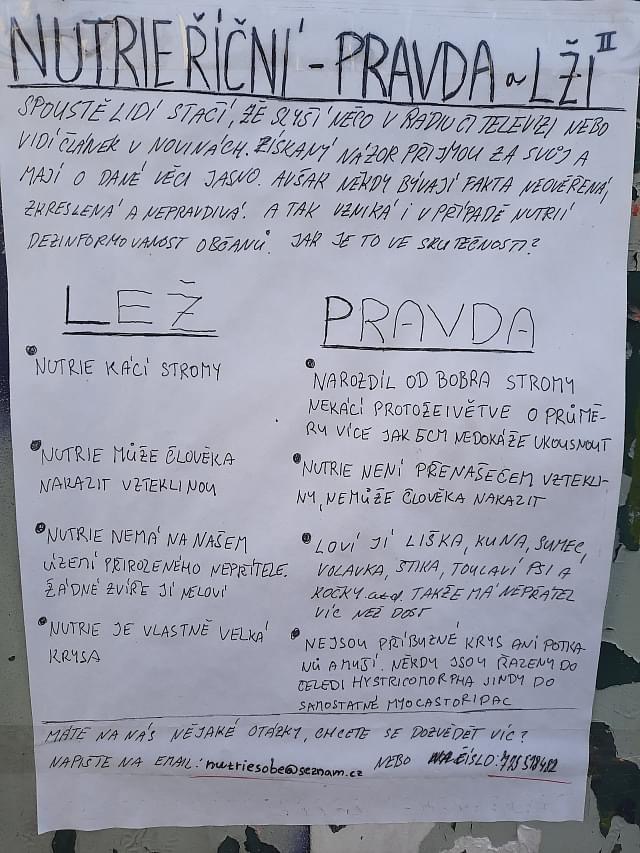 NUTRIE ŘÍČNÍ - PRAVDA a LŽI II
SPOUSTĚ LIDÍ STAČÍ, ŽE SLYŠÍ NĚCO V RADIU ČI TELEVIZI NEBO
VIDÍ ČLÁNEK V NOVINÁCH. ZÍSKANÝ NÁZOR PŘIJMOU ZA SVŮJ A
MAJÍ O DANÉ VĚCI JASNO. AVŠAK NĚKDY BÝVAJÍ FAKTA NEOVĚŘENÁ,
ZKRESLENÁ A NEPRAVDIVÁ. A TAK VZNIKÁ I V PŘÍPADĚ NUTRIÍ
DEZINFORMOVANOST OBČANŮ. JAK JE TO VE SKUTEČNOSTI?
LEŽ
NUTRIE KÁCÍ STROMY
NUTRIE MŮŽE ČLOVĚKA
NAKAZIT VZTEKLINOU
NUTRIE NEMÁ NA NAŠEM
ÚZEMÍ PŘIROZENÉHO NEPŘÍTELE.
ŽÁDNÉ ZVÍŘE JÍ NELOVÍ
NUTRIE JE VLASTNĚ VELKÁ
KRYSA
PRAVDA
NAROZDÍL OD BOBRA STROMY
NEKÁCÍ PROTOŽE I VĚTVE O PRŮMĚ-
RU VÍCE JAK 5CM NEDOKÁŽE UKOUSNOUT
NUTRIE NENÍ PŘENAŠEČEM VZTEKLI-
NY, NEMŮŽE ČLOVĚKA NAKAZIT
LOVÍ JÍ LIŠKA, KUNA, SUMEC,
VOLAVKA, ŠTIKA, TOULAVÍ PSI A
KOČKY atd. TAKŽE MÁ NEPŘÁTEL
VÍC NEŽ DOST
NEJSOU PŘÍBUZNÉ KRYS ANI POTKA-
NŮ A MYŠÍ. NĚKDY JSOU ŘAZENY DO
ČELEDI HYSTRICOMORPHA JINDY DO
SAMOSTATNÉ MYOCASTORIDAC
MÁTE NA NÁS NĚJAKÉ OTÁZKY, CHCETE SE DOZVĚDĚT VÍC?
NAPIŠTE NA EMAIL: nutriesobe@seznam.cz NEBO ČÍSLO: